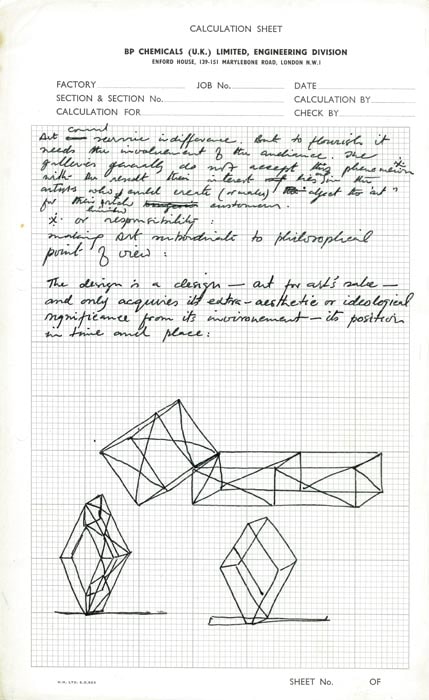 CALCULATION SHEET
BP CHEMICALS (U.K.) LIMITED, ENGINEERING DIVISION
ENFORD HOUSE, 139-151 MARYLEBONE ROAD, LONDON N.W.1
FACTORY JOB No. DATE
SECTION & SECTION No. CALCULATION BY
CALCULATION FOR CHECK BY
cannot
Art survive indifference. But to flourish it
needs the involvement of the audience. The
galleries generally do not accept this phenomenon x
with the result their interest lies in the
artists who could create (or make) object to art"
for their limited customers.
x. or responsibility:
making Art subordinate to philosophical
point of view:
The design is a design — art for art's sake —
and only acquires its extra-aesthetic or ideological
significance from its environement — its position
in time and place:
SHEET No. OF